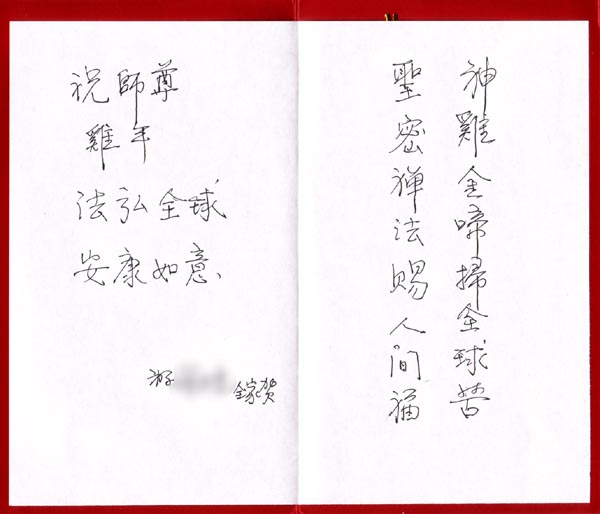 祝師尊
雞年
法弘全球
安康如意
神雞金啼掃全球苦
聖密禪法賜人間福